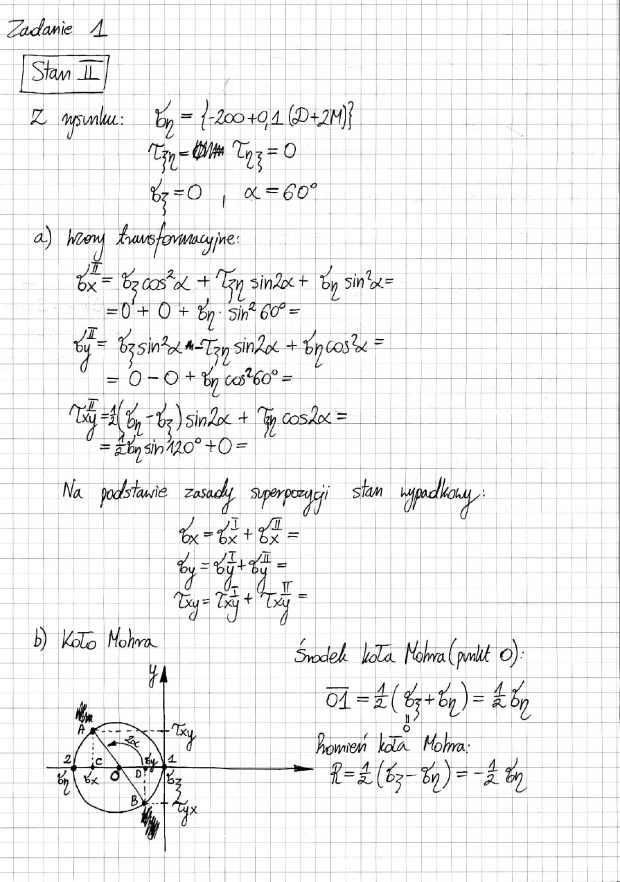 Zadanie 1
Stan II
Z rysunku: σ_η = {-200+0,1(D+2M)}
τ_ξη = τ_ηξ = 0
σ_ξ = 0 , α = 60°
a) Wzory transformacyjne:
σ_x^II = σ_ξ cos²α + τ_ξη sin2α + σ_η sin²α =
= 0 + 0 + σ_η · sin²60° =
σ_y^II = σ_ξ sin²α - τ_ξη sin2α + σ_η cos²α =
= 0 - 0 + σ_η cos²60° =
τ_xy^II = 1/2(σ_η - σ_ξ) sin2α + τ_ξη cos2α =
= 1/2 σ_η sin120° + 0 =
Na podstawie zasady superpozycji stan wypadkowy:
σ_x = σ_x^I + σ_x^II =
σ_y = σ_y^I + σ_y^II =
τ_xy = τ_xy^I + τ_xy^II =
b) Koło Mohra
Środek koła Mohra (punkt O):
O1 = 1/2(σ_ξ + σ_η) = 1/2 σ_η
0
Promień koła Mohra:
R = 1/2(σ_ξ - σ_η) = -1/2 σ_η
y
A
τ_xy
2α
2 C σ_y 1
σ_η σ_x O D σ_ξ
B τ_yx